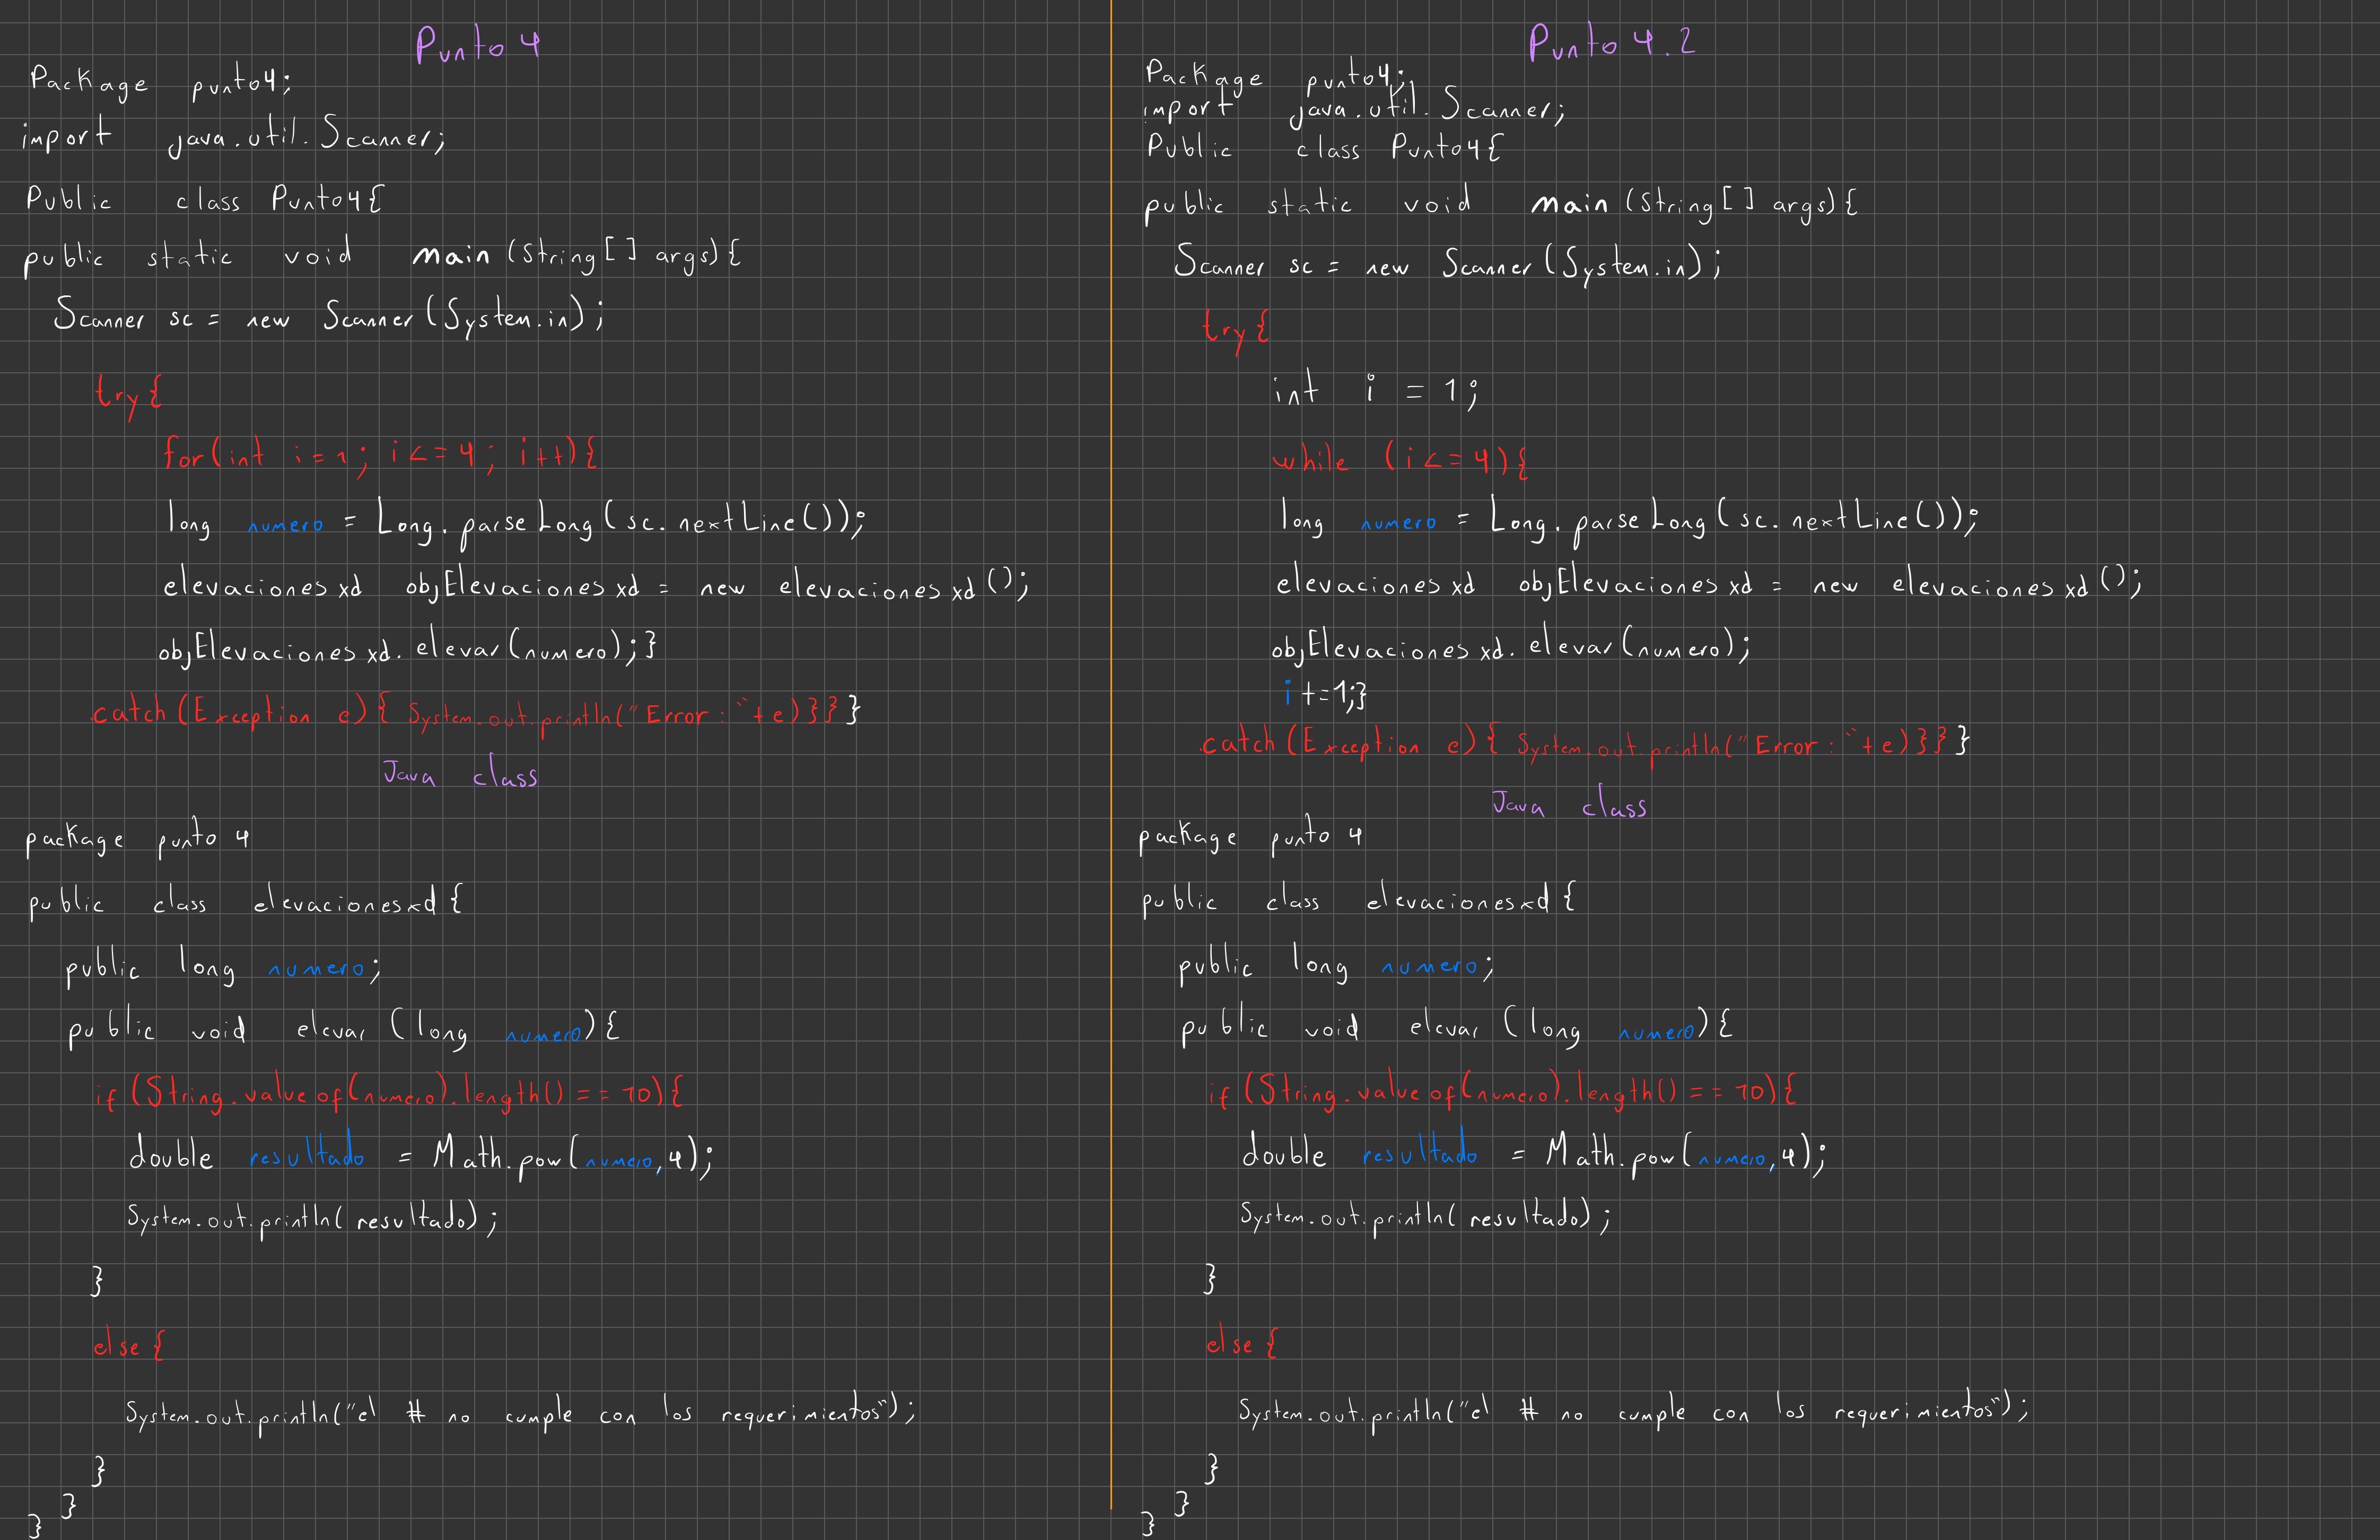 Punto 4
Package punto4;
import java.util.Scanner;
Public class Punto4{
public static void main (String[] args){
Scanner sc = new Scanner(System.in);
try{
for(int i=1; i<=4; i++){
long numero = Long.parseLong(sc.nextLine());
elevacionesxd objElevacionesxd = new elevacionesxd();
objElevacionesxd.elevar(numero);}
catch(Exception e){ System.out.println("Error: "+e)}}}
Java class
package punto 4
public class elevacionesxd{
public long numero;
public void elevar (long numero){
if (String.value of(numero).length() == 10){
double resultado = Math.pow(numero,4);
System.out.println(resultado);
}
else{
System.out.println("el # no cumple con los requerimientos");
}
}
}
Punto 4.2
Package punto4;
import java.util.Scanner;
Public class Punto4{
public static void main (String[] args){
Scanner sc = new Scanner(System.in);
try{
int i = 1;
while (i<=4){
long numero = Long.parseLong(sc.nextLine());
elevacionesxd objElevacionesxd = new elevacionesxd();
objElevacionesxd.elevar(numero);
i+=1;}
catch(Exception e){ System.out.println("Error: "+e)}}}
Java class
package punto 4
public class elevacionesxd{
public long numero;
public void elevar (long numero){
if (String.value of(numero).length() == 10){
double resultado = Math.pow(numero,4);
System.out.println(resultado);
}
else{
System.out.println("el # no cumple con los requerimientos");
}
}
}